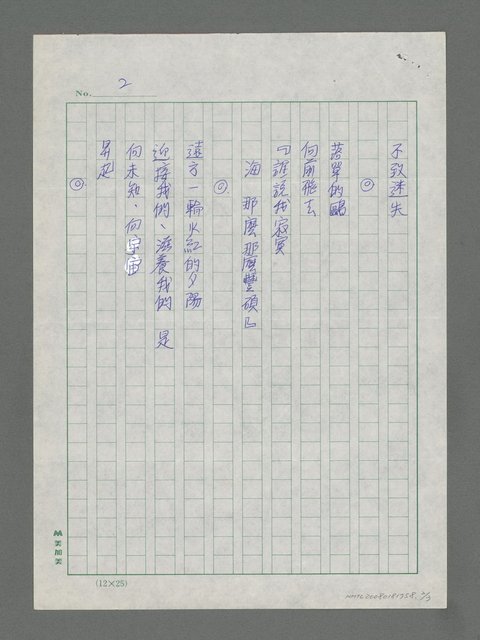 No. 2
不致迷失
◎
落單的鷗
向前飛去
『誰說我寂寞
海 那麼那麼豐碩』
◎
遠方一輪火紅的夕陽
迎接我們、滋養我們 是
向未知、向宇宙
昇起
◎
美加美
(12×25)
NMTL20080181758. 2/3